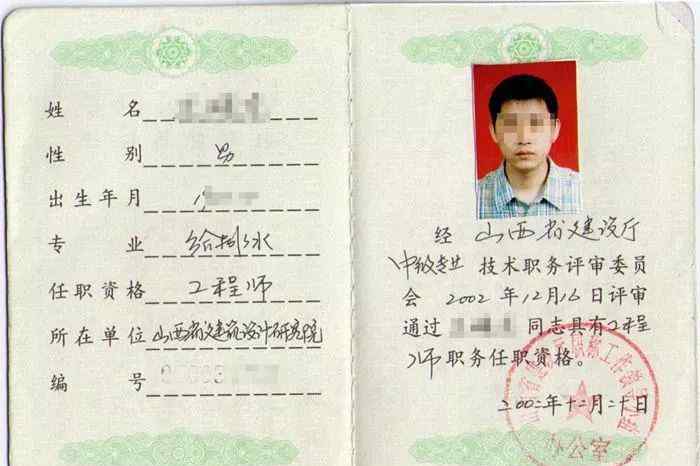 姓 名
性 别 男
出生年月
专 业 给排水
任职资格 工程师
所在单位 山西省建筑设计研究院
编 号
经 山西省建设厅
中级专业 技术职务评审委员
会 2002 年 12 月 16 日评审
通过 同志具有工程
师 职务任职资格。
2002年十二月二十日
办公室